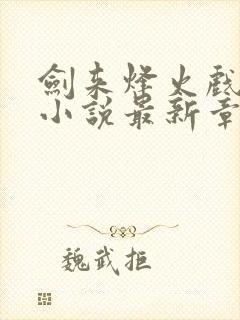 劍來烽火戲
小說最新章
魏武拒